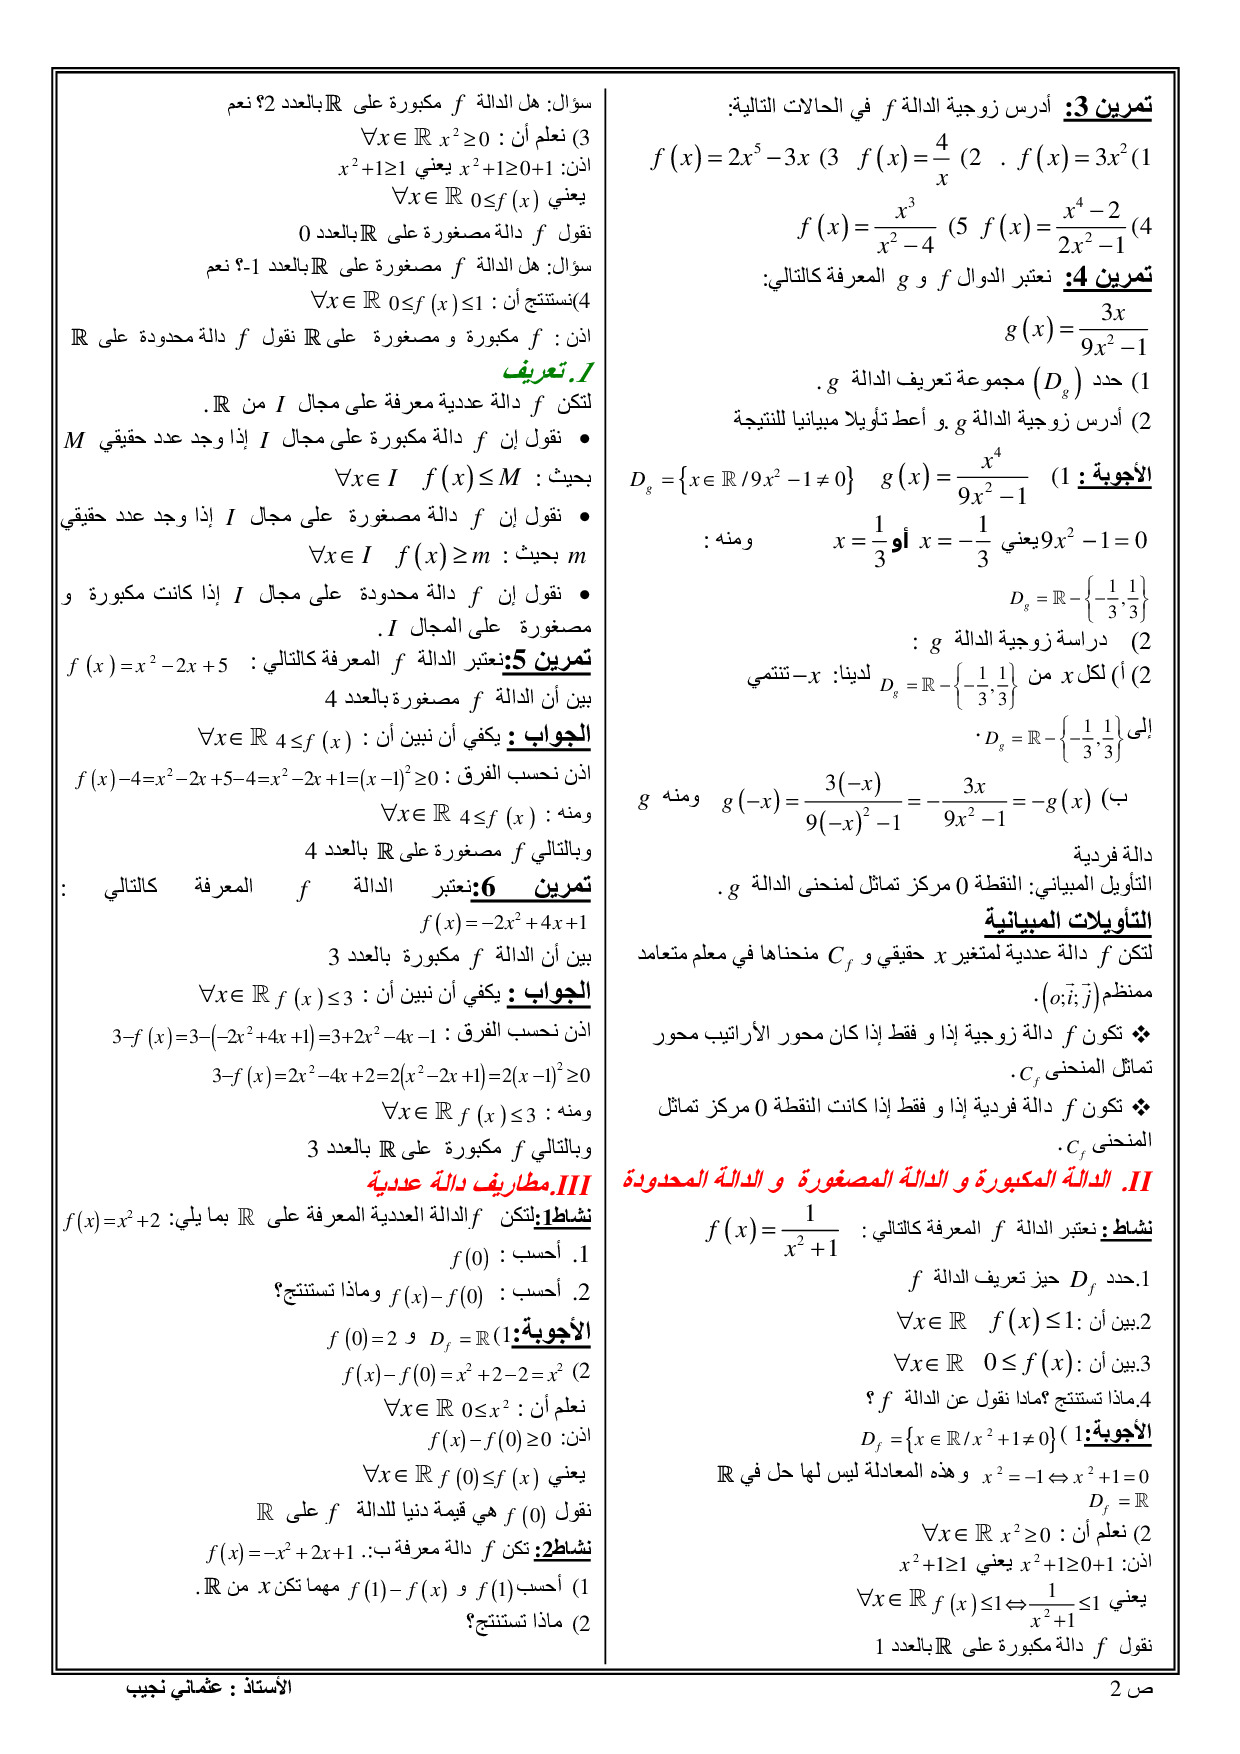 تمرين 3: أدرس زوجية الدالة f في الحالات التالية:
1) f(x)=3x² . 2) f(x)=4/x 3) f(x)=2x⁵−3x
4) f(x)=(x⁴−2)/(2x²−1) 5) f(x)=x³/(x²−4)
تمرين 4: نعتبر الدوال f و g المعرفة كالتالي:
g(x)=3x/(9x²−1)
1) حدد (D_g) مجموعة تعريف الدالة g .
2) أدرس زوجية الدالة g .و أعط تأويلا مبيانيا للنتيجة
الأجوبة : 1) g(x)=x⁴/(9x²−1) D_g={x∈ℝ/9x²−1≠0}
9x²−1=0 يعني x=−1/3 أو x=1/3 ومنه :
D_g=ℝ−{−1/3,1/3}
2) دراسة زوجية الدالة g :
2) أ) لكل x من D_g=ℝ−{−1/3,1/3} لدينا: −x تنتمي
إلى D_g=ℝ−{−1/3,1/3} .
ب) g(−x)=3(−x)/(9(−x)²−1)=−3x/(9x²−1)=−g(x) ومنه g
دالة فردية
التأويل المبياني: النقطة 0 مركز تماثل لمنحنى الدالة g .
التأويلات المبيانية
لتكن f دالة عددية لمتغير x حقيقي و C_f منحناها في معلم متعامد
ممنظم (o;i⃗;j⃗) .
❖ تكون f دالة زوجية إذا و فقط إذا كان محور الأراتيب محور
تماثل المنحنى C_f .
❖ تكون f دالة فردية إذا و فقط إذا كانت النقطة 0 مركز تماثل
المنحنى C_f .
II. الدالة المكبورة و الدالة المصغورة و الدالة المحدودة
نشاط : نعتبر الدالة f المعرفة كالتالي : f(x)=1/(x²+1)
1.حدد D_f حيز تعريف الدالة f
2.بين أن : f(x)≤1 ∀x∈ℝ
3.بين أن : 0≤f(x) ∀x∈ℝ
4.ماذا تستنتج ؟مادا نقول عن الدالة f ؟
الأجوبة:1 ) D_f={x∈ℝ/x²+1≠0}
x²=−1⇔x²+1=0 وهذه المعادلة ليس لها حل في ℝ
D_f=ℝ
2) نعلم أن : x²≥0 ∀x∈ℝ
اذن: x²+1≥0+1 يعني x²+1≥1
يعني f(x)≤1⇔1/(x²+1)≤1 ∀x∈ℝ
نقول f دالة مكبورة على ℝ بالعدد 1
سؤال: هل الدالة f مكبورة على ℝ بالعدد 2؟ نعم
3) نعلم أن : x²≥0 ∀x∈ℝ
اذن: x²+1≥0+1 يعني x²+1≥1
يعني 0≤f(x) ∀x∈ℝ
نقول f دالة مصغورة على ℝ بالعدد 0
سؤال: هل الدالة f مصغورة على ℝ بالعدد 1-؟ نعم
4)نستنتج أن : 0≤f(x)≤1 ∀x∈ℝ
اذن : f مكبورة و مصغورة على ℝ نقول f دالة محدودة على ℝ
1. تعريف
لتكن f دالة عددية معرفة على مجال I من ℝ .
• نقول إن f دالة مكبورة على مجال I إذا وجد عدد حقيقي M
بحيث : f(x)≤M ∀x∈I
• نقول إن f دالة مصغورة على مجال I إذا وجد عدد حقيقي
m بحيث : f(x)≥m ∀x∈I
• نقول إن f دالة محدودة على مجال I إذا كانت مكبورة و
مصغورة على المجال I .
تمرين 5:نعتبر الدالة f المعرفة كالتالي : f(x)=x²−2x+5
بين أن الدالة f مصغورة بالعدد 4
الجواب : يكفي أن نبين أن : 4≤f(x) ∀x∈ℝ
اذن نحسب الفرق : f(x)−4=x²−2x+5−4=x²−2x+1=(x−1)²≥0
ومنه : 4≤f(x) ∀x∈ℝ
وبالتالي f مصغورة على ℝ بالعدد 4
تمرين 6:نعتبر الدالة f المعرفة كالتالي :
f(x)=−2x²+4x+1
بين أن الدالة f مكبورة بالعدد 3
الجواب : يكفي أن نبين أن : f(x)≤3 ∀x∈ℝ
اذن نحسب الفرق : 3−f(x)=3−(−2x²+4x+1)=3+2x²−4x−1
3−f(x)=2x²−4x+2=2(x²−2x+1)=2(x−1)²≥0
ومنه : f(x)≤3 ∀x∈ℝ
وبالتالي f مكبورة على ℝ بالعدد 3
III.مطاريف دالة عددية
نشاط1:لتكن f الدالة العددية المعرفة على ℝ بما يلي: f(x)=x²+2
1. أحسب : f(0)
2. أحسب : f(x)−f(0) وماذا تستنتج؟
الأجوبة:1) D_f=ℝ و f(0)=2
2) f(x)−f(0)=x²+2−2=x²
نعلم أن : 0≤x² ∀x∈ℝ
اذن: f(x)−f(0)≥0
يعني f(0)≤f(x) ∀x∈ℝ
نقول f(0) هي قيمة دنيا للدالة f على ℝ
نشاط2: تكن f دالة معرفة ب:. f(x)=−x²+2x+1
1) أحسب f(1) و f(1)−f(x) مهما تكن x من ℝ .
2) ماذا تستنتج؟
ص 2
الأستاذ : عثماني نجيب